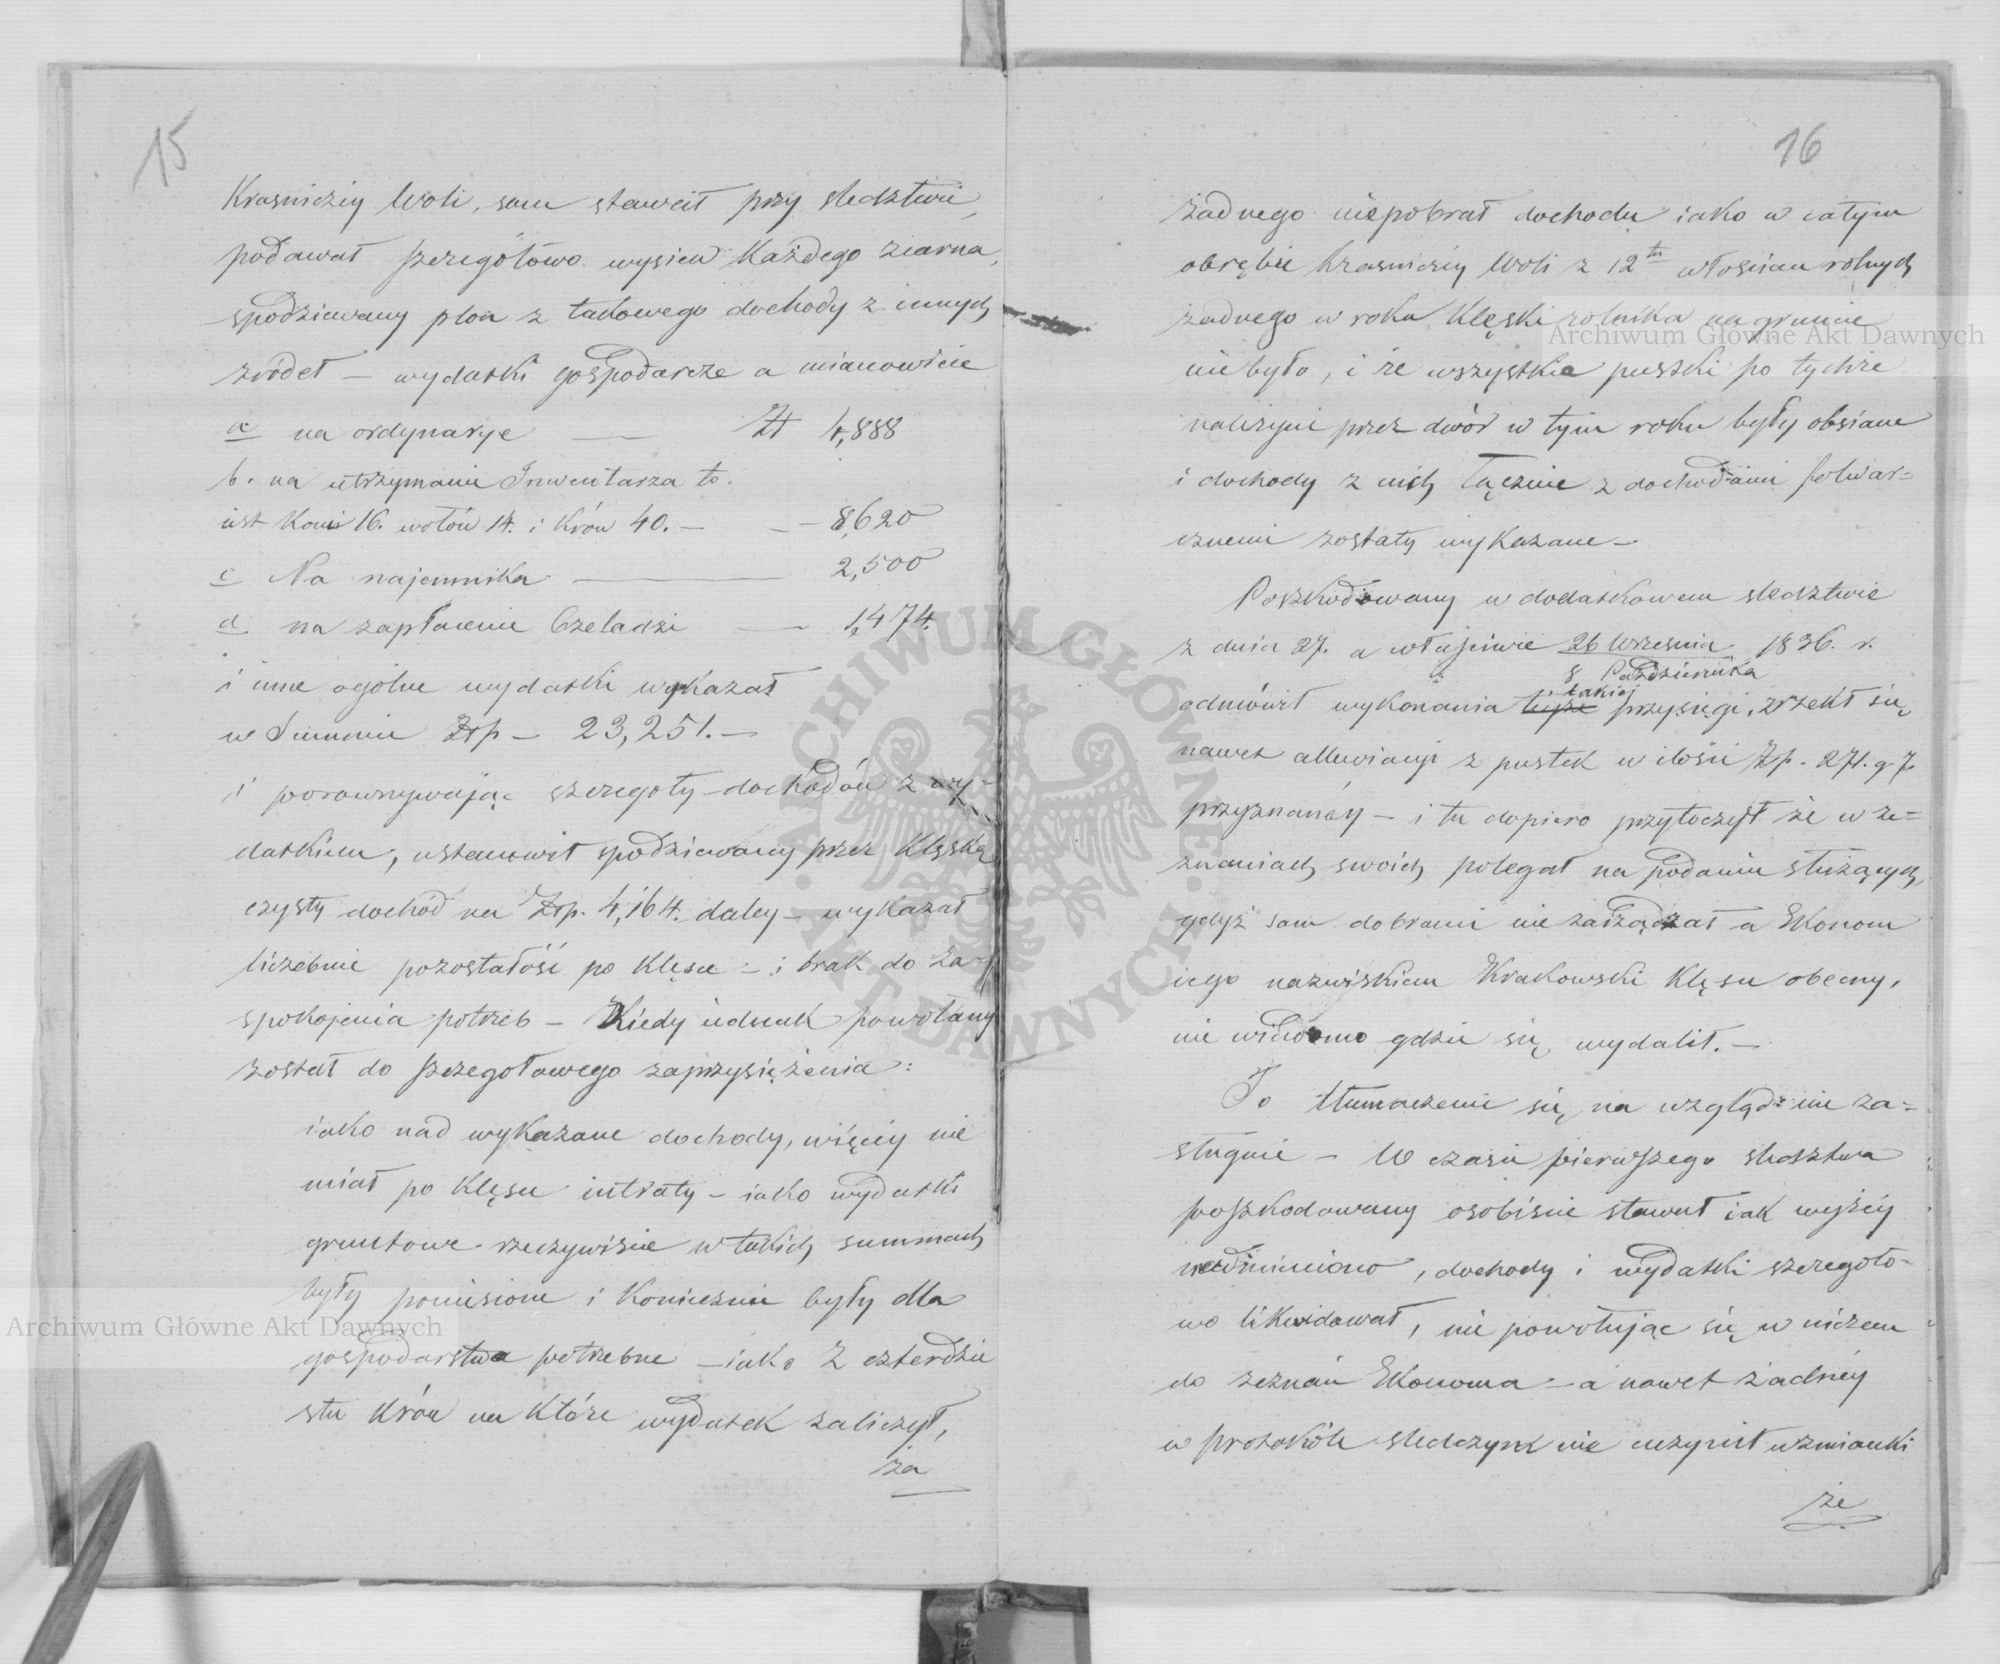 15
Krasniczéy Woli, sam stawał przy sledztwie,
podawał szczegółowo wysiew każdego ziarna,
spodziewany plon z takowego dochody z innych
zródeł – wydatki gospodarcze a mianowicie
a na ordynarye — Zł 4,888
b. na utrzymanie Inwentarza to.
iest Koni 16. wołów 14. i Krów 40. — — 8,620
c Na najemnika — 2,500
d na zapłacenie Czeladzi — 1,474.
i inne ogólne wydatki wykazał
w Summie Złp – 23,251. –
i porownywając szczegoły dochodów z wy-
datkiem, ustanowił spodziewany przez Klęskę
czysty dochód na Złp. 4,164. daley – wykazał
liczebnie pozostałość po Klęsce – i brak do za-
spokojenia potrzeb – Kiedy iednak powołany
został do szczegołowego zaprzysiężenia:
iako nad wykazane dochody, więcéy nie
miał po Klęsce intraty – iako wydatki
gruntowe rzeczywiscie w takich summach
były poniesione i Koniecznie były dla
gospodarstwa potrzebne – iako z czterdzie
stu Krów na Które wydatek zaliczył,
ża
16
żadnego niepobrał dochodu iako w całym
obrębie Krasniczéy Woli z 12tu włościan rolnych
żadnego w roku Klęski rolnika na gruncie
nie było, i że wszystkie pustki po tychże
należycie przez dwór w tym roku były obsiane
i dochody z nich łącznie z dochodami folwar=
cznemi zostały wykazane –
Poszkodowany w dodatkowem sledztwie
z dnia 27. a właściwie 26 Wrzesnia 1836. r.
8 Października
odmówił wykonania tejże takiej przysięgi, zrzekł się
nawet alluwiacyi z pustek w ilości Zp. 271. g 7.
przyznanéy – i tu dopiero przytoczył że w ze=
znaniach swoich polegał na podaniu służących,
gdyż sam dobrami nie zarządzał a Ekonom
iego nazwiskiem Krakowski Klęsce obecny,
nie wiadomo gdzie się wydalił. –
To tłumaczenie się na względ nie za=
sługuie – W czasie pierwszego sledztwa
poszkodowany osobiscie stawał iak wyżéy
nadmieniono, dochody i wydatki szczegoło-
wo likwidował, nie powołując się w niczem
do zeznań Ekonoma – a nawet żadnéy
w protokóle sledczym nie uczynił wzmianki
że
Archiwum Główne Akt Dawnych
Archiwum Główne Akt Dawnych
ARCHIWUM GŁÓWNE
AKT DAWNYCH